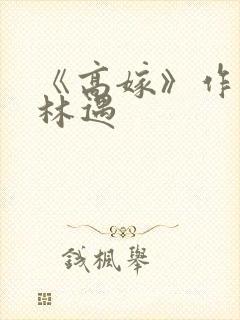 《高嫁》作
林遇
钱枫举